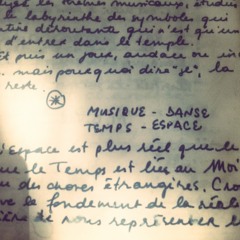 les thèmes musicaux, étudié
le labyrinthe des symboles qui
déroutante qui n'est qu'un
d'entrer dans le temple.
Et puis un jour, audace ou
mais pourquoi dire "je", la
reste.
MUSIQUE - DANSE
TEMPS - ESPACE
l'Espace est plus réel que le
que le Temps est liés au Moi
des choses étrangères.
le fondement de la réali
de nous représenter l